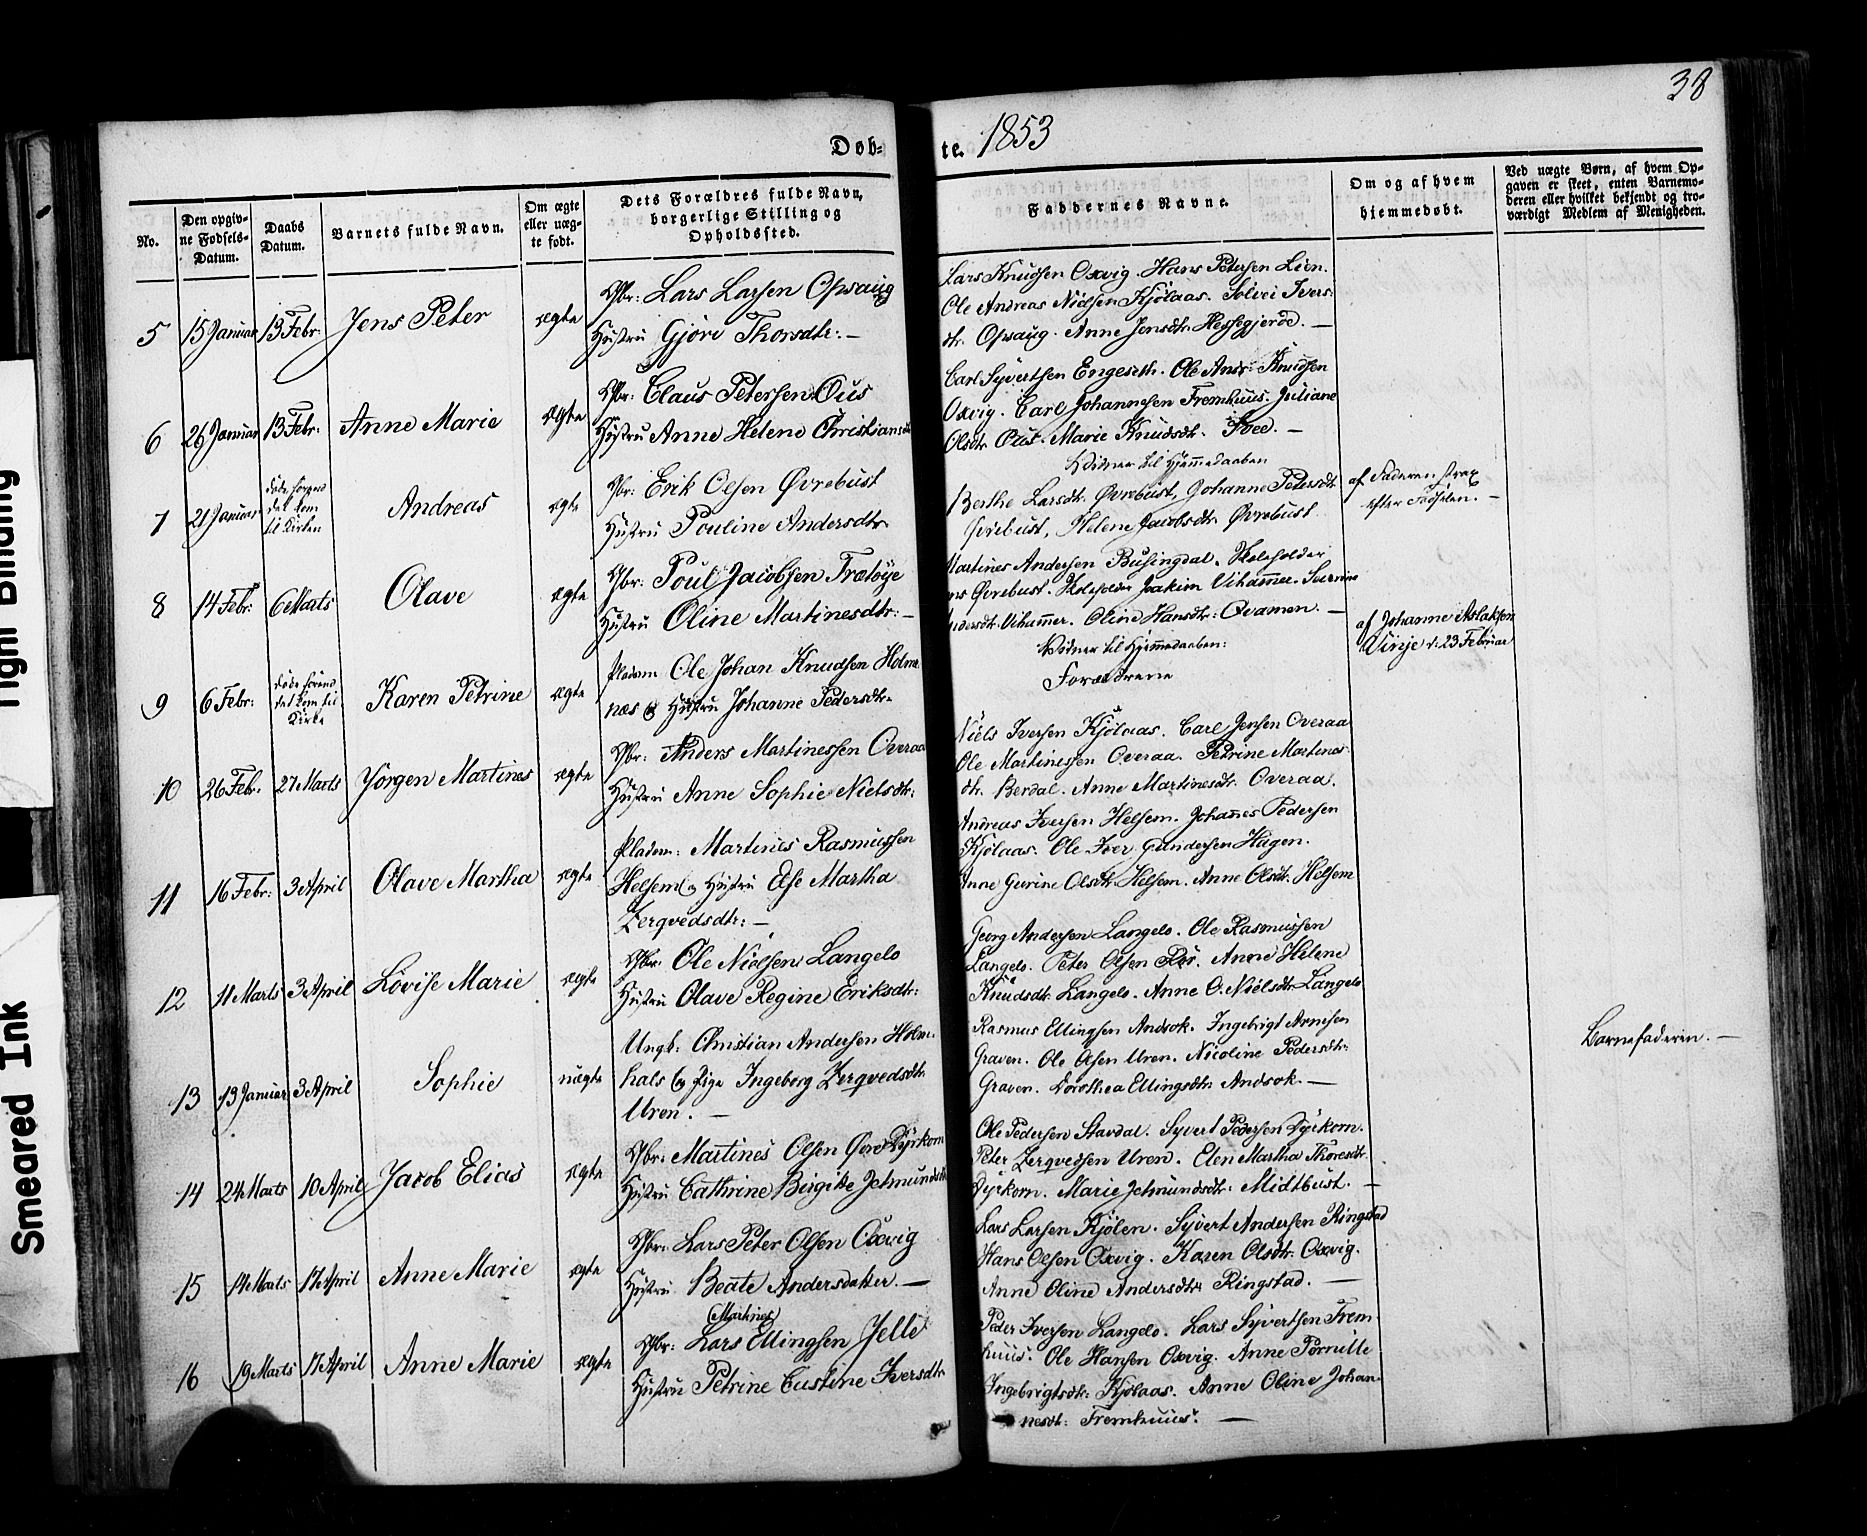 38
Døb-
te. 1853
No.
Den opgiv-
ne Fødsels-
Datum.
Daabs
Datum.
Barnets fulde Navn.
Om ægte
eller uæg-
te født.
Dets Forældres fulde Navn,
borgerlige Stilling og
Opholdssted.
Faddernes Navne.
Om og af hvem
hjemmedøbt.
Ved uægte Børn, af hvem Op-
gaven er skeet, enten Barnemo-
deren eller hvilket bekjendt og tro-
værdigt Medlem af Menigheden.
5 15 Januar 13 Febr: Jens Peter ægte
Gbr: Lars Larsen Opsaug
Hustru Gjøri Thorsdtr: —
Lars Knudsen Oxvig. Hans Petersen Lien.
Ole Andreas Nielsen Kjølaas. Solvei Ivers-
dtr. Opsaug. Anne Jensdtr. Hessegjerde. —
6 26 Januar 13 Febr: Anne Marie ægte
Gbr: Claus Petersen Ous
Hustru Anne Helene Christiansdtr
Carl Syvertsen Engeseth. Ole Andr: Knudsen
Oxvig. Carl Johannesen Fremhuus. Juliane
Olsdtr. Ous. Marie Knudsdtr. —
7 21 Januar døde førend
det kom
til Kirken
Andreas ægte
Gbr: Erik Olsen Øvrebust
Hustru Pouline Andersdtr.
Vidner til Hjemmedaaben
Berthe Larsdtr. Øvrebust, Johanne Petersdtr
Øvrebust, Helene Jacobsdtr. Øvrebust
af Faderen strax
efter Fødselen. —
8 14 Febr: 6 Marts Olave ægte
Gbr: Poul Jacobsen Fretøye
Hustru Oline Martinesdtr: —
Martines Andersen Busingdal. Skoleholder
Øvrebust. Skoleholder Joakim Vihammer.
Vihammer. Oline Hansdtr: Qvamen. —
9 6 Febr: døde førend
det kom til
Kirke
Karen Petrine ægte
Pladsm: Ole Johan Knudsen Holme
næs og Hustru Johanne Pedersdtr.
Vidner til Hjemmedaaben:
Forældrene
af Johanne Aslaksen
Vinje d: 23 Februar
10 26 Febr. 27 Marts Jørgen Martines ægte
Gbr: Anders Martinessen Overaa
Hustru Anne Sophie Nielsdtr:
Niels Iversen Kjølaas. Carl Jensen Overaa
Ole Martinessen Overaa. Petrine Martines-
dtr. Berdal. Anne Martinesdtr. Overaa.
11 16 Febr: 3 April Olave Martha ægte
Pladsm: Martines Rasmussen
Helsem og Hustru Else Martha
Zerqvedsdtr: —
Andreas Iversen Helsem. Johannes Pedersen
Kjølaas. Ole Iver Gundersen Hagen.
Anne Gurine Olsdtr. Helsem. Anne Olsdtr. Helsem
12 11 Marts 3 April Lovise Marie ægte
Gbr: Ole Nielsen Langelo
Hustru Olave Regine Eriksdtr:
Georg Andersen Langelo. Ole Rasmussen
Langelo. Peter Olsen Rør. Anne Helene
Knudsdtr. Langelo. Anne O. Nielsdtr. Langelo
13 13 Januar 3 April Sophie uægte
Ungk: Christian Andersen Holm-
hals og Pige Ingeborg Zerqvedsdtr.
Uren. —
Rasmus Ellingsen Andsok. Ingebrigt Arnesen
Graven. Ole Olsen Uren. Nicoline Pedersdtr:
Graven. Dorothea Ellingsdtr: Andsok. —
Barnefaderen. —
14 24 Marts 10 April Jacob Elias ægte
Gbr: Martines Olsen Øvre Dyrkorn
Hustru Cathrine Birgitte Jetmundsdtr
Ole Pedersen Stavdal. Syvert Pedersen Dyrkorn.
Peter Zerqvedsen Uren. Elen Martha Thoresdtr.
Dyrkorn. Marie Jetmundsdtr: Midtbust. —
15 14 Marts 17 April Anne Marie ægte
Gbr: Lars Peter Olsen Oxvig
Hustru Beate Andersdatter. —
Lars Larsen Kjølen. Syvert Andersen Ringstad
Hans Olsen Oxvig. Karen Olsdtr. Oxvig.
Anne Oline Andersdtr: Ringstad. —
16 19 Marts 17 April Anne Marie ægte
(Martines)
Gbr: Lars Ellingsen Jelle
Hustru Petrine Iversdtr.
Peder Iversen Langelo. Lars Syvertsen Frem
huus. Ole Hansen Oxvig. Anne Pernille
Ingebrigtsdtr: Kjølaas. Anne Oline Johan-
nesdt: Fremhuus. —
Tight Binding
Smeared Ink